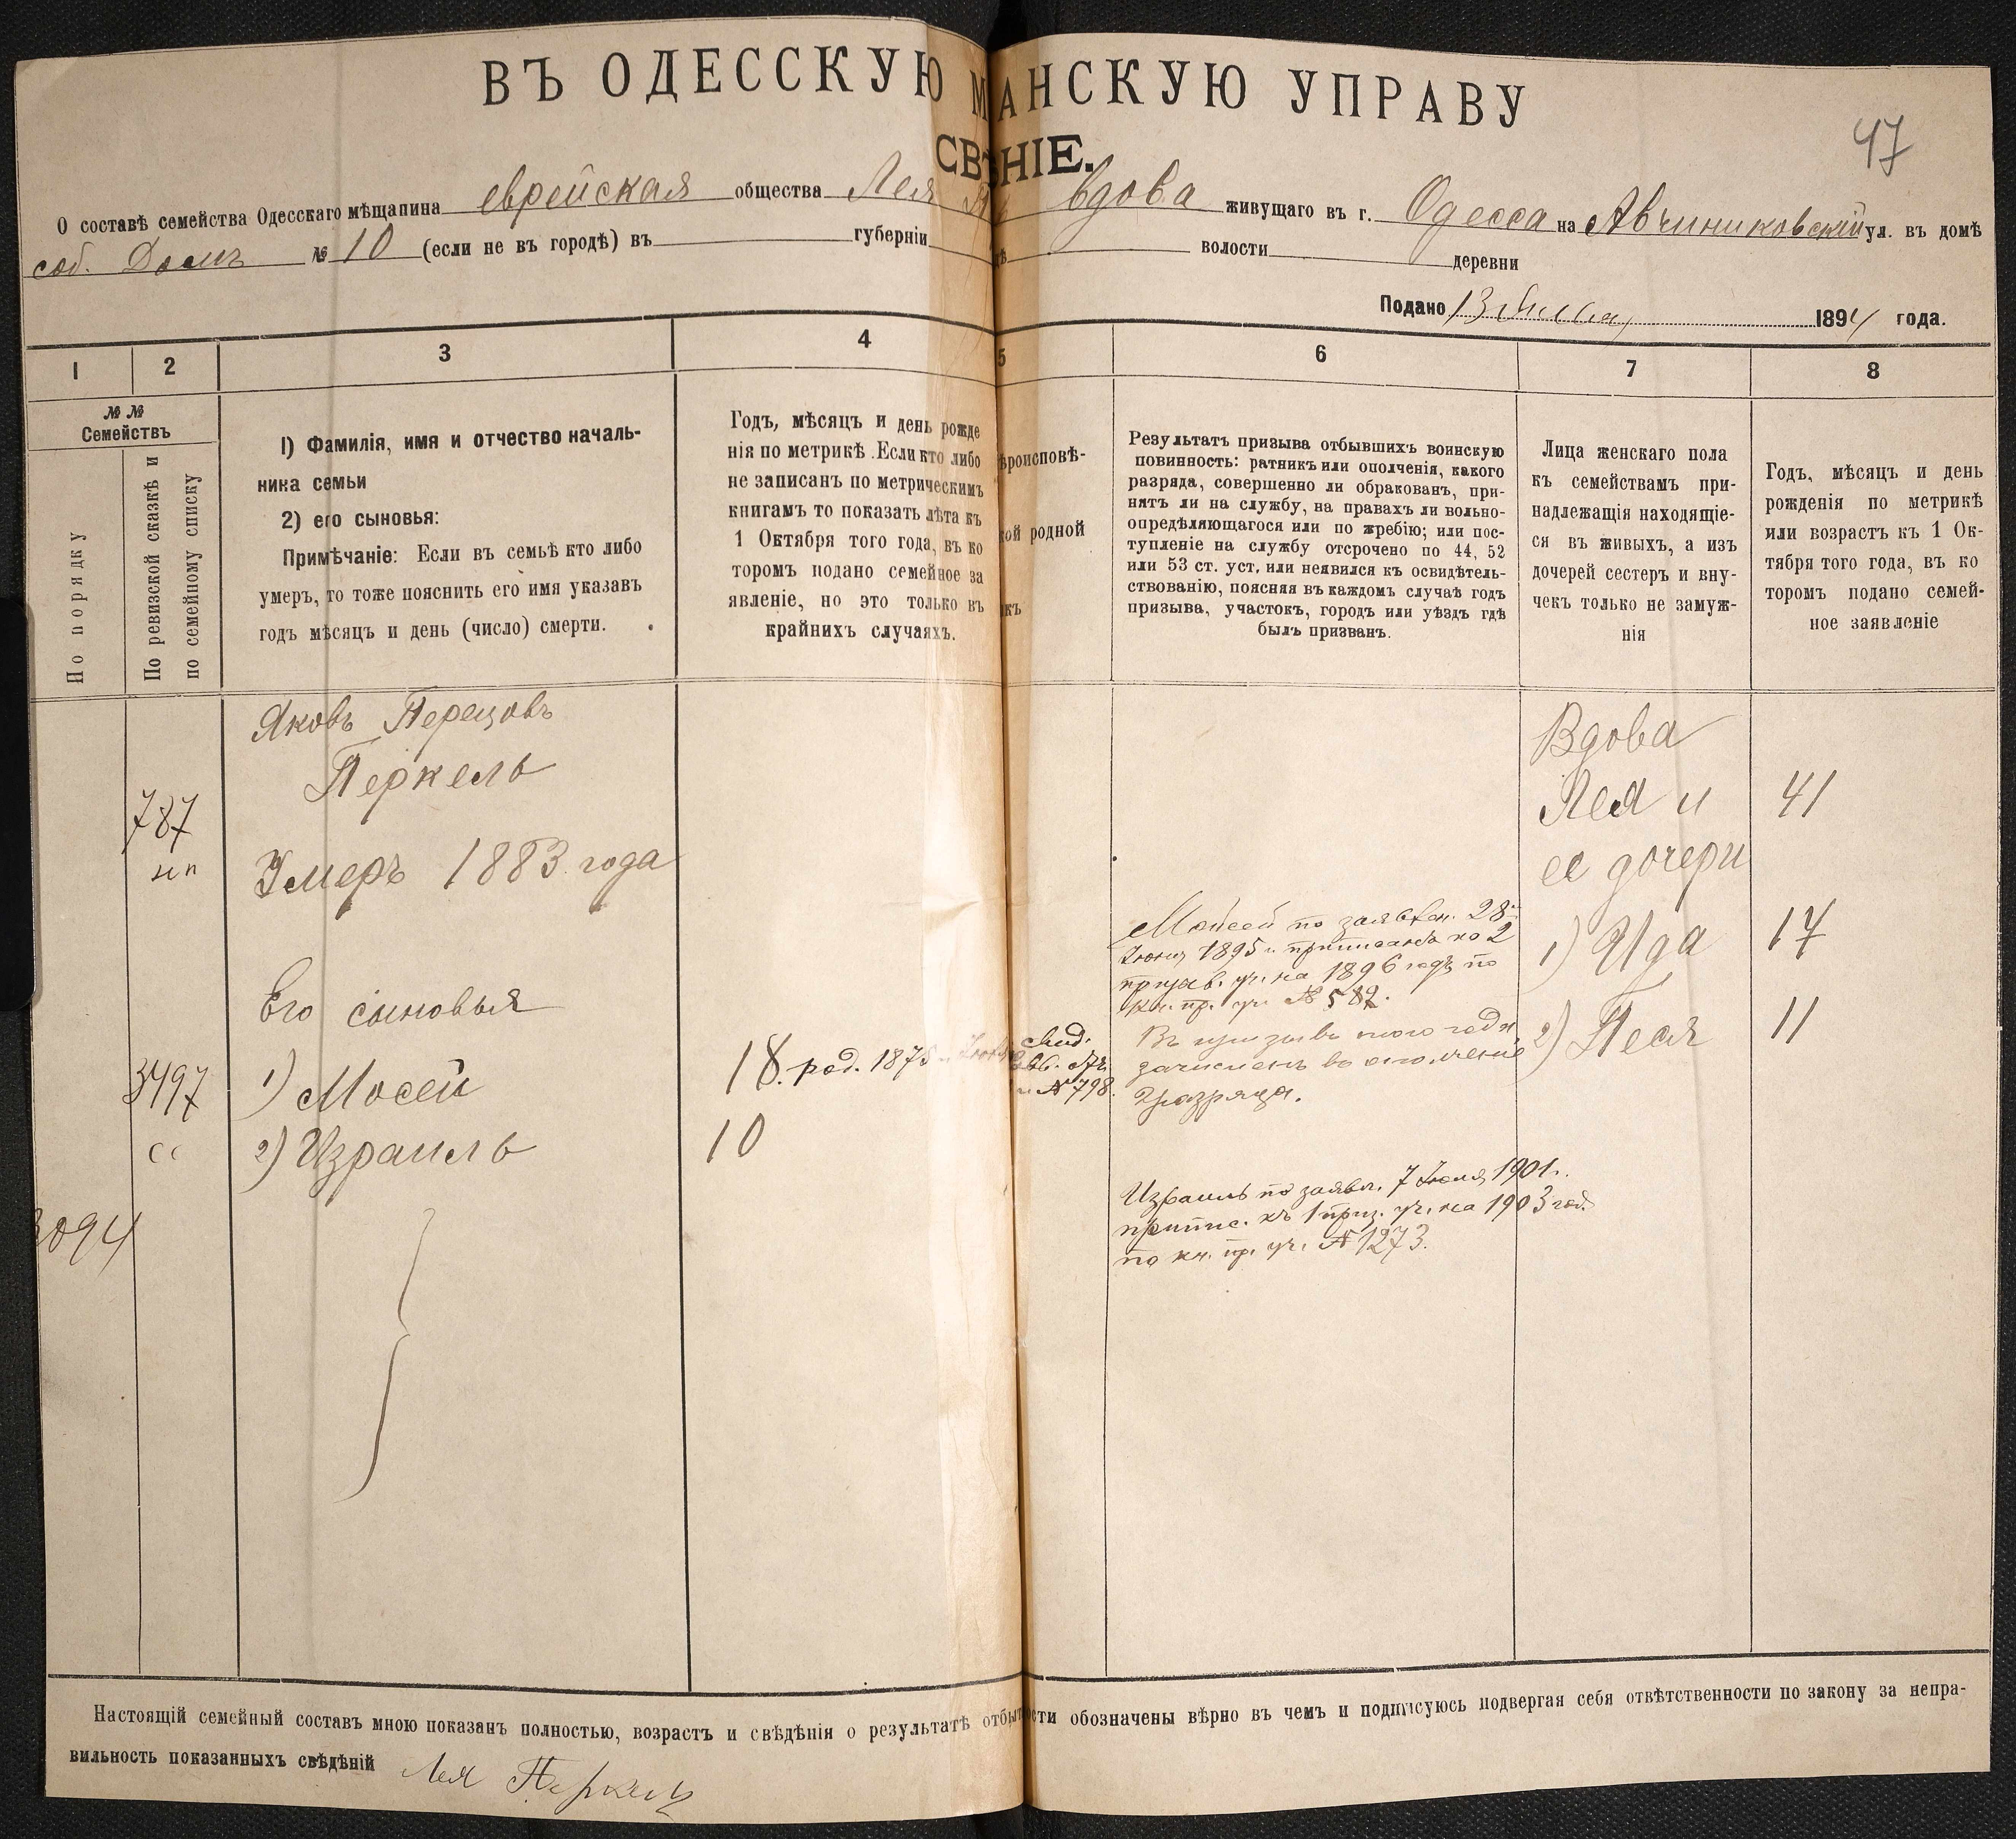 ВЪ ОДЕССКУЮ М АНСКУЮ УПРАВУ
СВѢ НІЕ.
47
О составѣ семейства Одесскаго мѣщанина еврейская общества Лея вдова живущаго въ г. Одесса на Авчиниковскій ул. въ домѣ
соб. Домъ № 10 (если не въ городѣ) въ губерніи волости деревни
Подано 13 1894 года.
1 2 3 4 5 6 7 8
№ №
Семействъ
По порядку
По ревизской сказкѣ и
по семейному списку
1) Фамилія, имя и отчество началь-
ника семьи
2) его сыновья:
Примѣчаніе: Если въ семьѣ кто либо
умеръ, то тоже пояснить его имя указавъ
годъ мѣсяцъ и день (число) смерти.
Годъ, мѣсяцъ и день рожде
нія по метрикѣ. Если кто либо
не записанъ по метрическимъ
книгамъ то показать лѣта къ
1 Октября того года, въ ко
торомъ подано семейное за
явленіе, но это только въ
крайнихъ случаяхъ.
ѣроисповѣ-
кой родной
къ
Результатъ призыва отбывшихъ воинскую
повинность: ратникъ или ополченія, какого
разряда, совершенно ли обракованъ, при-
нятъ ли на службу, на правахъ ли вольно-
опредѣляющагося или по жребію; или пос-
тупленіе на службу отсрочено по 44, 52
или 53 ст. уст. или неявился къ освидѣтель-
ствованію, поясняя въ каждомъ случаѣ годъ
призыва, участокъ, городъ или уѣздъ гдѣ
былъ призванъ.
Лица женскаго пола
къ семействамъ при-
надлежащія находящіе-
ся въ живыхъ, а изъ
дочерей сестеръ и вну-
чекъ только не замуж-
нія
Годъ, мѣсяцъ и день
рожденія по метрикѣ
или возрастъ къ 1 Ок-
тября того года, въ ко
торомъ подано семей-
ное заявленіе
Яковъ Перецовъ
Перкель
787
нп
Умеръ 1883 года
Его сыновья
3497 1) Мосей 18. род. 1875
№ 798.
сс 2) Израиль 10
3094
Мойсей по заявлен. 28
Іюня 1895 г. приписанъ ко 2
призыв. уч. на 1896 годъ по
кн. пр. уч. № 582.
Въ призывъ того года
зачисленъ въ ополченіе
2 разряда.
Израиль по заявл. 7 Іюня 1901 г.
припис. къ 1 приз. уч. на 1903 год.
по кн. пр. уч. № 1273.
Вдова
Лея и 41
ее дочери
1) Ида 17
2) Песя 11
Настоящій семейный составъ мною показанъ полностью, возрастъ и свѣдѣнія о результатѣ отбы сти обозначены вѣрно въ чемъ и подписуюсь подвергая себя отвѣтственности по закону за непра-
вильность показанныхъ свѣдѣній Лея Перкель